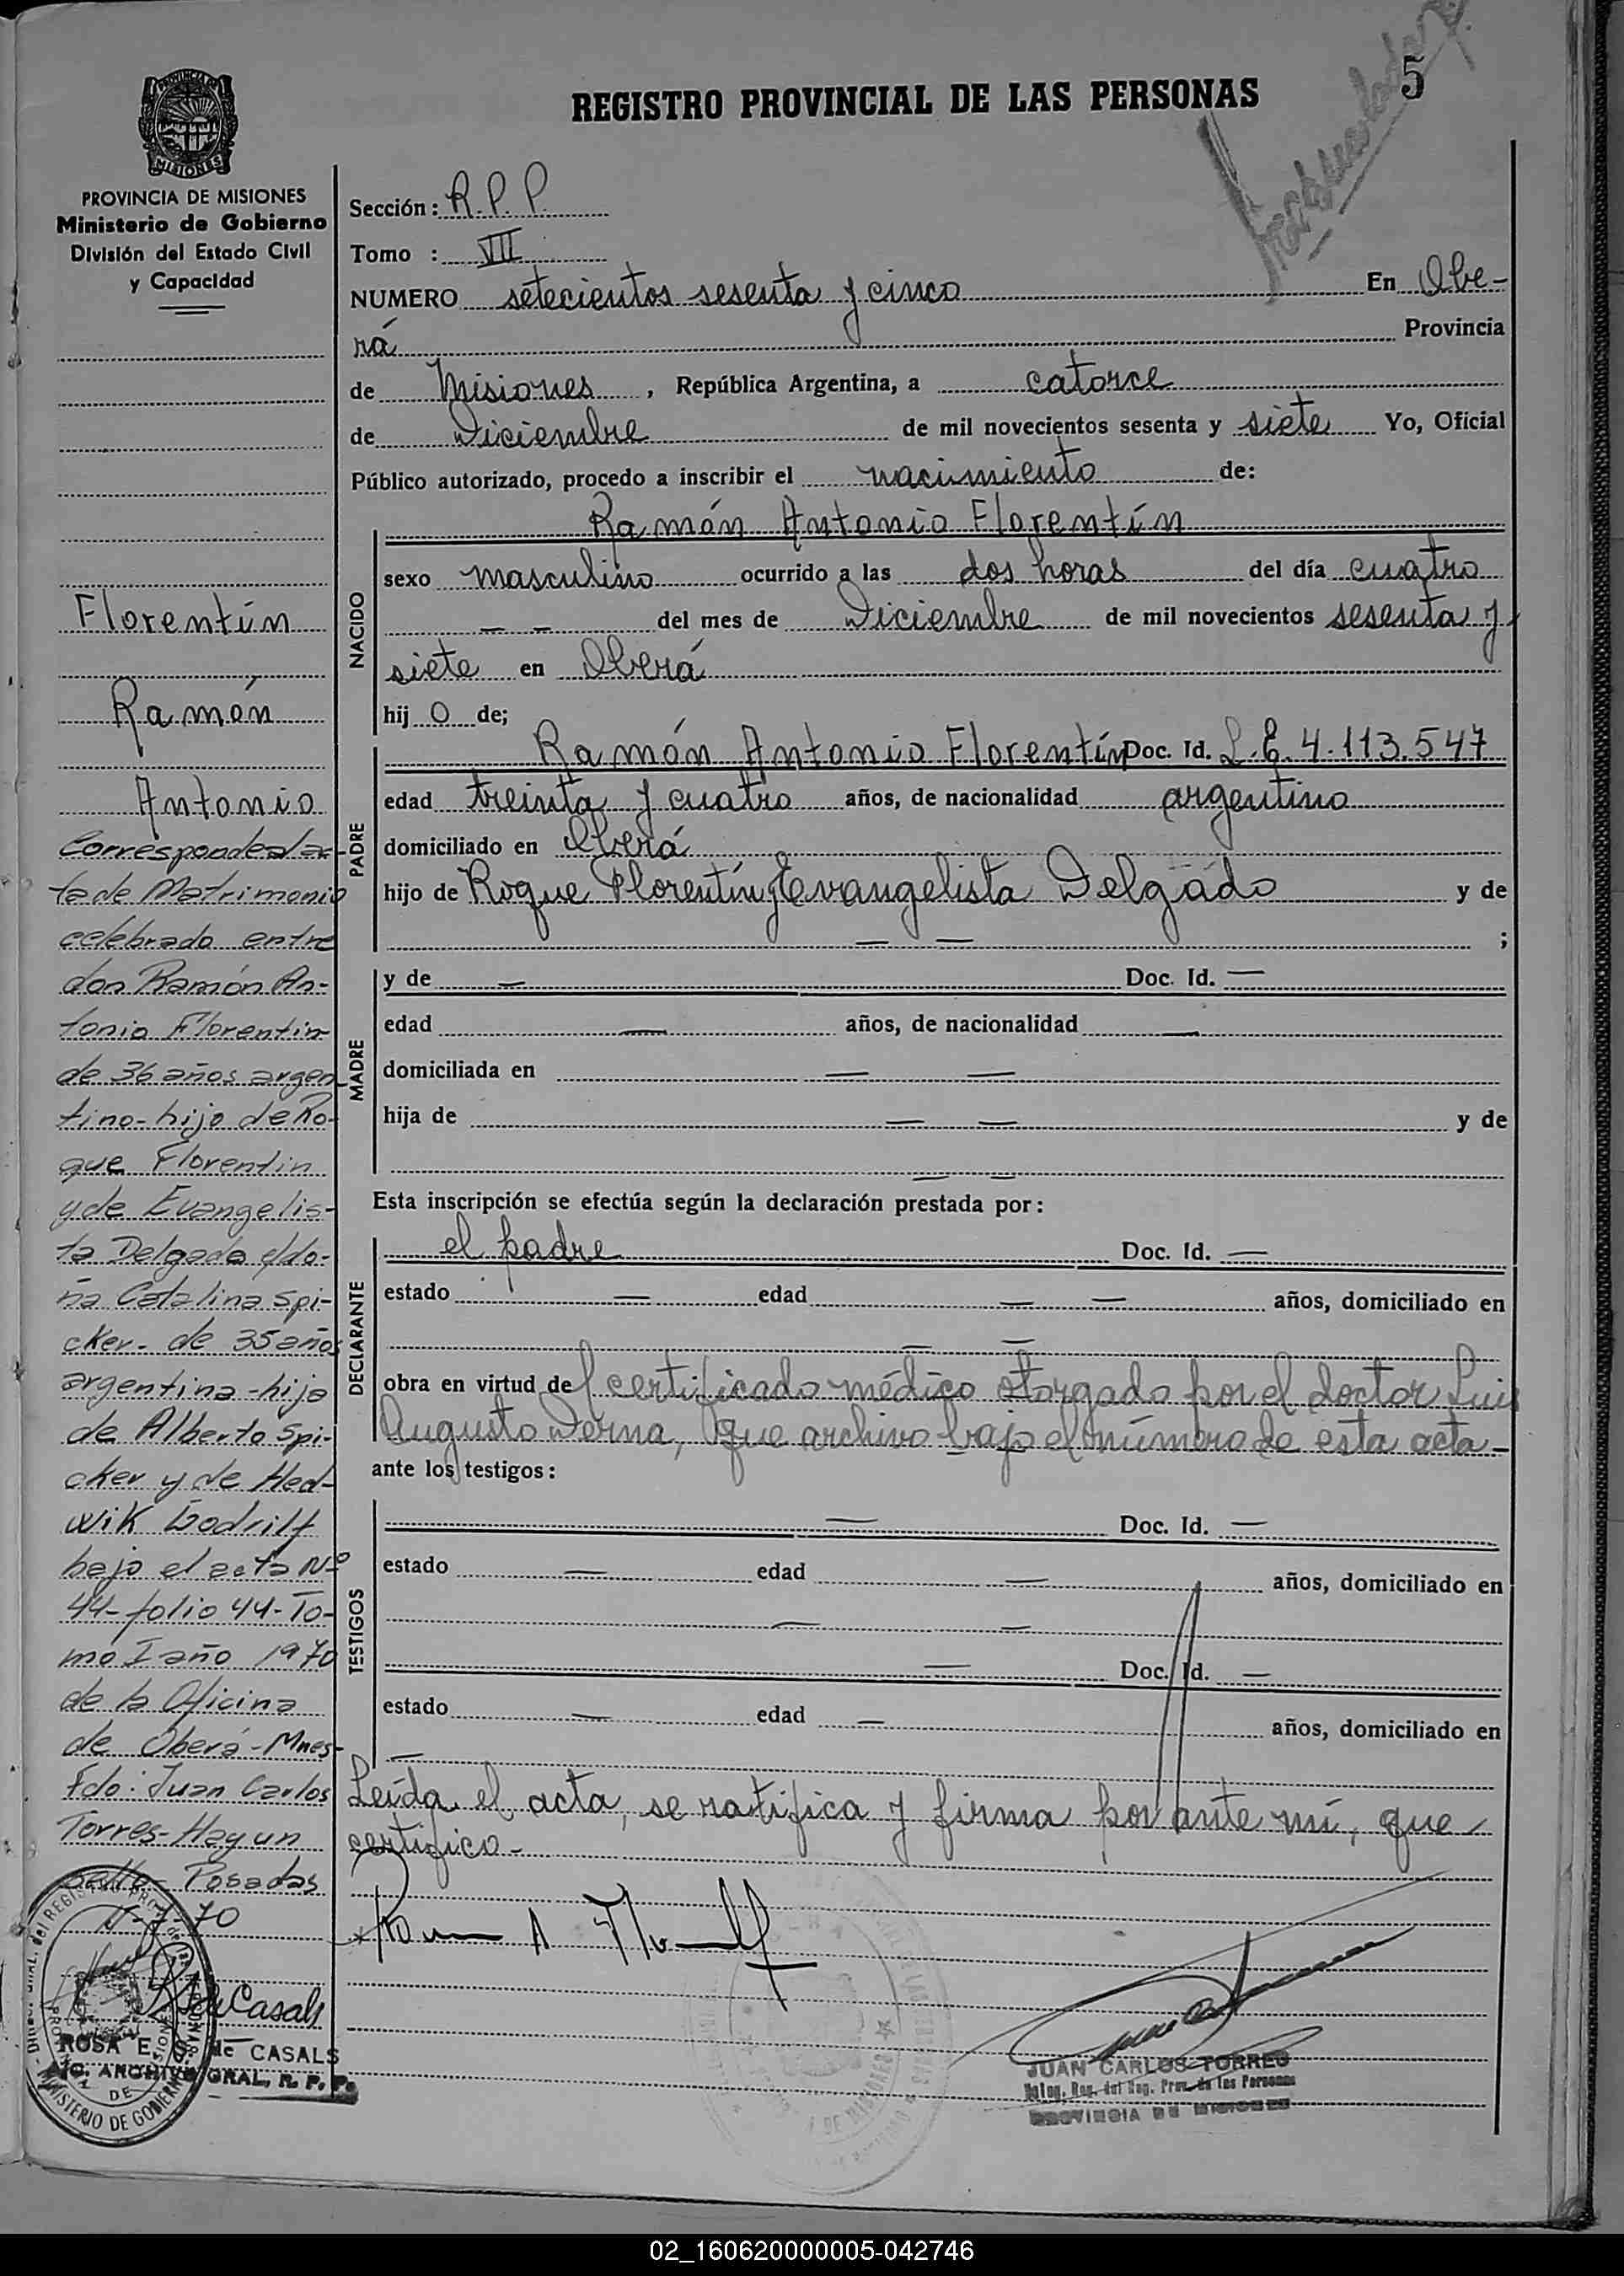 5
REGISTRO PROVINCIAL DE LAS PERSONAS
PROVINCIA DE MISIONES
Ministerio de Gobierno
División del Estado Civil
y Capacidad
Florentín
Ramón
Antonio
Corresponde al ac-
ta de Matrimonio
celebrado entre
don Ramón An-
tonio Florentin
de 36 años argen
tino-hijo de Ro-
que Florentin
y de Evangelis-
ta Delgado c/do-
ña Catalina Spi-
cker- de 35 años
argentina-hija
de Alberto Spi-
cker y de Hed-
wik
bajo el acta Nº
44-folio 44-To-
mo I año 1970
de la Oficina
de Oberá-Mnes-
Fdo: Juan Carlos
Torres-Hay un
sello- Posadas
70
ROSA E. de CASALS
ARCHIVO GRAL. R. P. P.
Sección: R.P.P.
Tomo : VII
NUMERO setecientos sesenta y cinco En Obe-
rá Provincia
de Misiones, República Argentina, a catorce
de Diciembre de mil novecientos sesenta y siete Yo, Oficial
Público autorizado, procedo a inscribir el nacimiento de:
NACIDO
Ramón Antonio Florentín
sexo masculino ocurrido a las dos horas del día cuatro
— — del mes de Diciembre de mil novecientos sesenta y
siete en Oberá
hij o de;
PADRE
Ramón Antonio Florentín Doc. Id. L.E. 4.113.547
edad treinta y cuatro años, de nacionalidad argentino
domiciliado en Oberá
hijo de Roque Florentín y Evangelista Delgado y de
— — ;
MADRE
y de — Doc. Id. —
edad — años, de nacionalidad —
domiciliada en — —
hija de — — y de
— —
Esta inscripción se efectúa según la declaración prestada por:
DECLARANTE
el padre Doc. Id. —
estado — edad — — años, domiciliado en
— —
obra en virtud del certificado médico otorgado por el doctor Luis
Augusto Derna, que archivo bajo el número de esta acta-
ante los testigos:
TESTIGOS
— Doc. Id. —
estado — edad — años, domiciliado en
— —
— Doc. Id. —
estado — edad — años, domiciliado en
—
Leída el acta, se ratifica y firma por ante mí, que
certifico-
JUAN CARLOS TORRES
PROVINCIA DE MISIONES
02_160620000005-042746